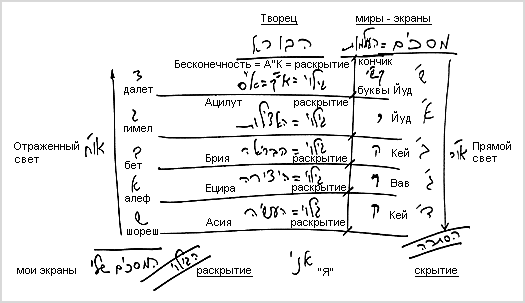 Творец миры - экраны
הבורא מסכים = העולמות
Бесконечность = А"К = раскрытие кончик
גילוי = א"ק = א"ס
далет буквы Йуд
Ацилут раскрытие
גילוי = האצילות י א' Йуд
гимел
Отраженный свет או"ח
Прямой свет
גילוי = הבריאה ה ב' Кей
бет Брия раскрытие
גילוי = היצירה ו ג' Вав
алеф Ецира раскрытие
גילוי = העשיה ה ד' Кей
шореш Асия раскрытие
המסכים שלי הגילוי אני הסתרה
мои экраны раскрытие "Я" скрытие